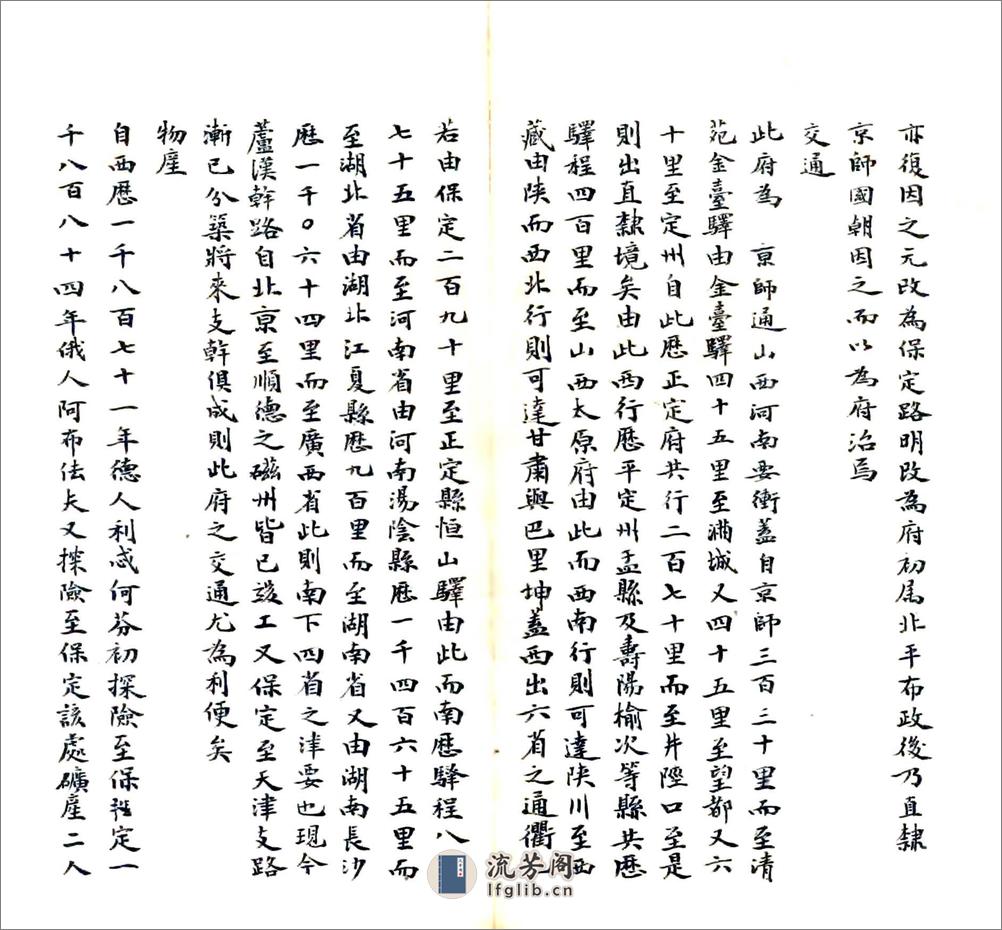 亦復因之元改為保定路明改為府初屬北平布政後乃直隸
京師國朝因之而以為府治焉
交通
此府為　京師通山西河南要衝蓋自京師三百三十里而至清
苑金臺驛由金臺驛四十五里至滿城又四十五里至望都又六
十里至定州自此歷正定府共行二百七十里而至井陘口至是
則出直隸境矣由此西行歷平定州盂縣及壽陽榆次等縣共歷
驛程四百里而至山西太原府由此而西南行則可達陝川至西
藏由陝而西北行則可達甘肅與巴里坤蓋西出六省之通衢
若由保定二百九十里至正定縣恒山驛由此而南歷驛程八
七十五里而至河南省由河南湯陰縣歷一千四百六十五里而
至湖北省由湖北江夏縣歷九百里而至湖南省又由湖南長沙
歷一千〇六十四里而至廣西省此則南下四省之津要也現今
蘆漢幹路自北京至順德之磁州皆已竣工又保定至天津支路
漸已分築將來支幹俱成則此府之交通尤為利便矣
物產
自西歷一千八百七十一年德人利忒何芬初探險至保定一
千八百八十四年俄人阿布法夫又探險至保定該處礦產二人
流芳阁
lfglib.cn